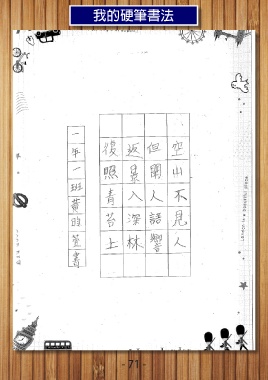 我的硬筆書法
空山不見人
但聞人語響
返景入深林
復照青苔上
一年一班黃
書
- 71 -